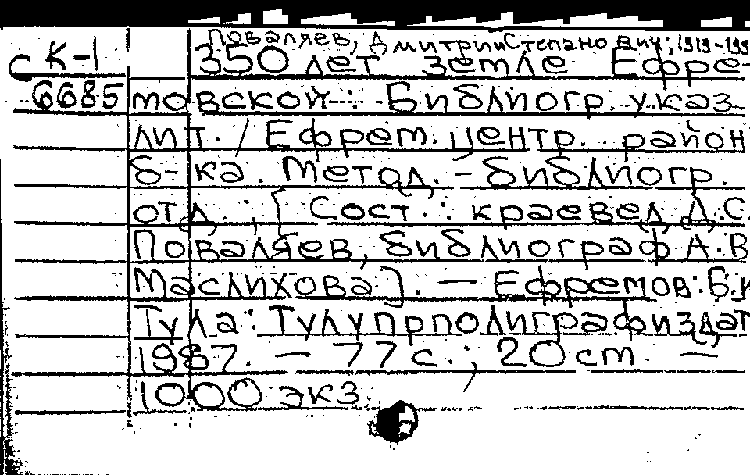 Поваляев, Дмитрий Степанович; 1919-199
с К-1 350 лет земле Ефре-
6685 мовской: Библиогр. указ.
лит. / Ефрем. центр. район
б-ка. Метод.-библиогр.
отд.; [Сост.: краевед Д.С.
Поваляев, библиограф А.В.
Маслихова]. — Ефремов: Б.и
Тула: Тулупрполиграфиздат
1987. — 77 с.; 20 cm. —
1000 экз.